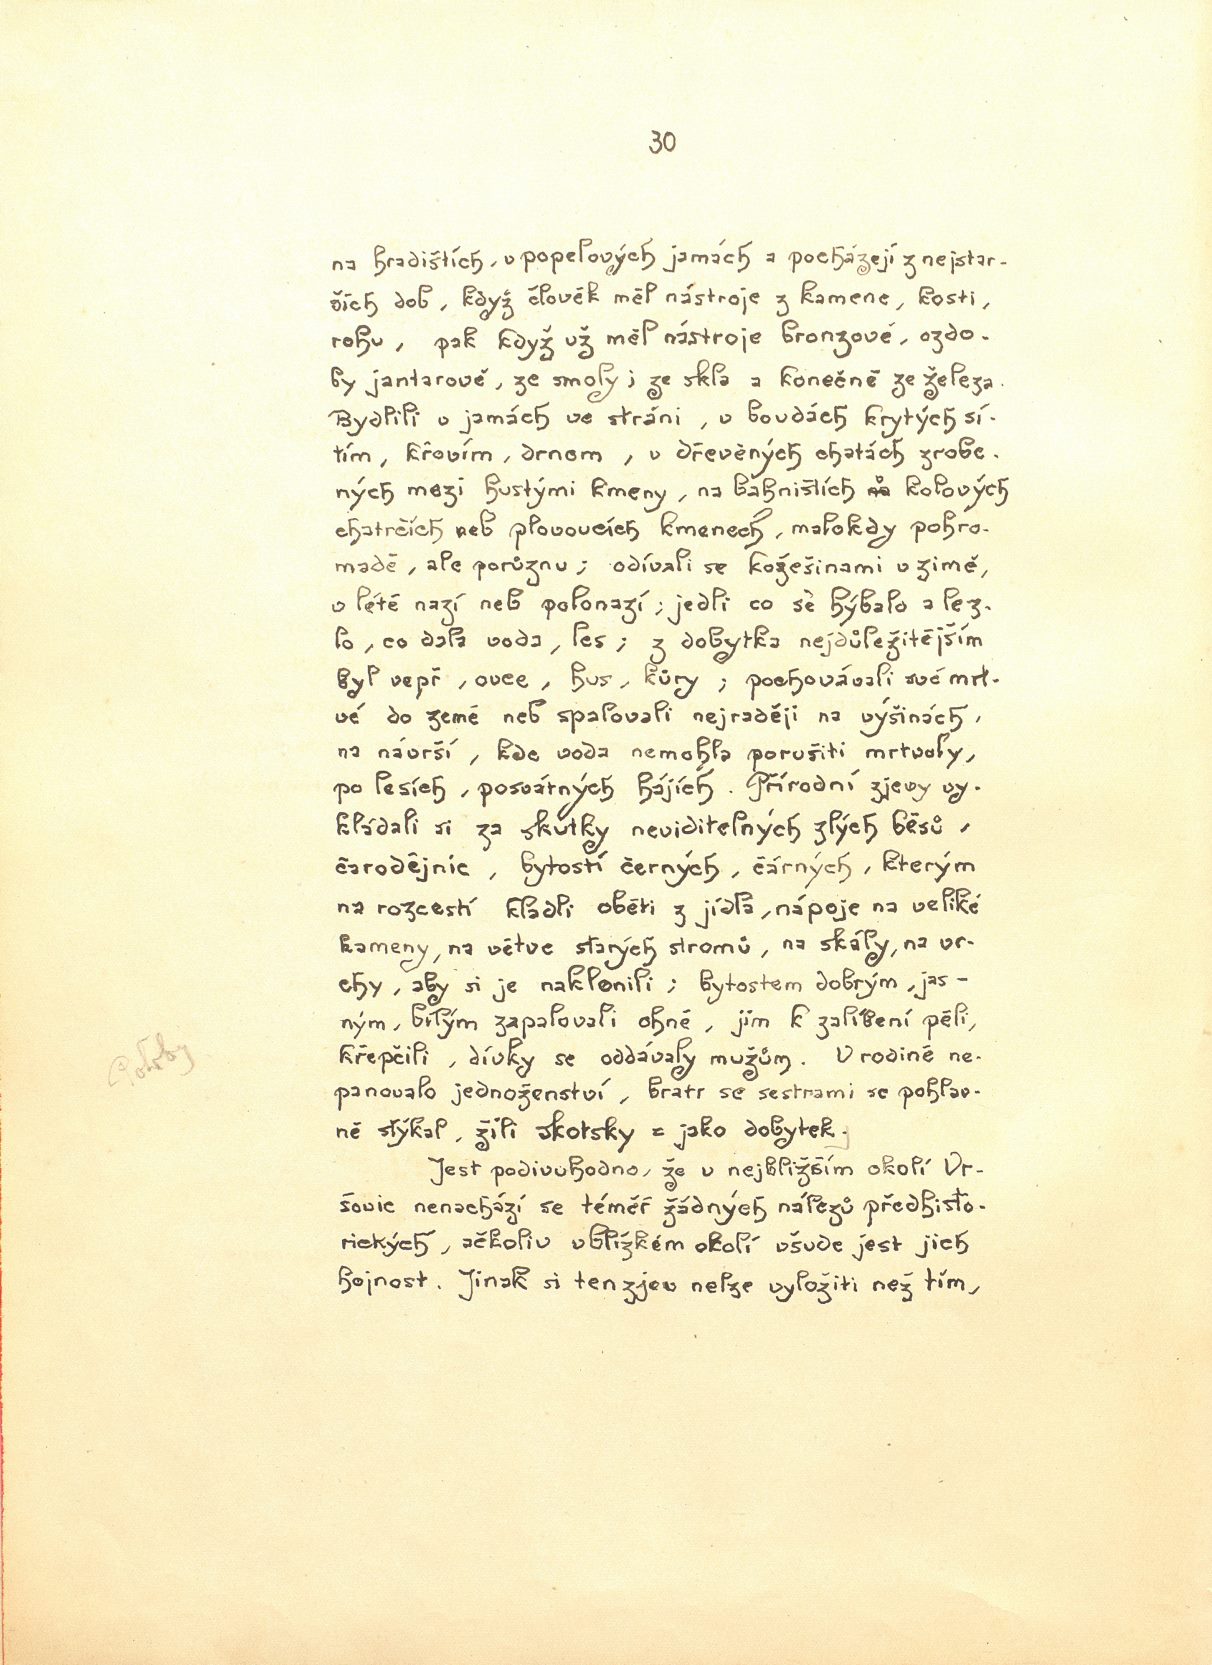 30
na hradištích, v popelových jamách a pocházejí z nejstar-
ších dob, když člověk měl nástroje z kamene, kosti,
rohu, pak když už měl nástroje bronzové, ozdo-
by jantarové, ze smoly; ze skla a konečně ze železa.
Bydlili v jamách ve stráni, v boudách krytých sí-
tím, křovím, drnem, v dřevěných chatách zrobe-
ných mezi hustými kmeny, na bahništích kolových
chatrčích neb plovoucích kmenech, málokdy pohro-
madě, ale porůznu; odívali se kožešinami v zimě,
v létě nazí neb polonazí; jedli co se hýbalo a lez-
lo, co dala voda, les; z dobytka nejdůležitějším
byl vepř, ovce, hus, kůry; pochovávali své mrt-
vé do země neb spalovali nejraději na výšinách,
na návrší, kde voda nemohla porušiti mrtvoly,
po lesích, posvátných hájích. Přírodní zjevy vy-
kládali si za skutky neviditelných zlých běsů,
čarodějnic, bytostí černých, čárných, kterým
na rozcestí kladli oběti z jídla, nápoje na veliké
kameny, na větve starých stromů, na skály, na vr-
chy, aby si je naklonili; bytostem dobrým, jas-
ným, bílým zapalovali ohně, jim k zalíbení pěli,
křepčili, dívky se oddávaly mužům. V rodině ne-
panovalo jednoženství, bratr se sestrami se pohlav-
ně stýkal, žili skotsky = jako dobytek.
Jest podivuhodno, že v nejbližším okolí Vr-
šovic nenachází se téměř žádných nálezů předhisto-
rických, ačkoliv v blízkém okolí všude jest jich
hojnost. Jinak si ten zjev nelze vyložiti než tím,